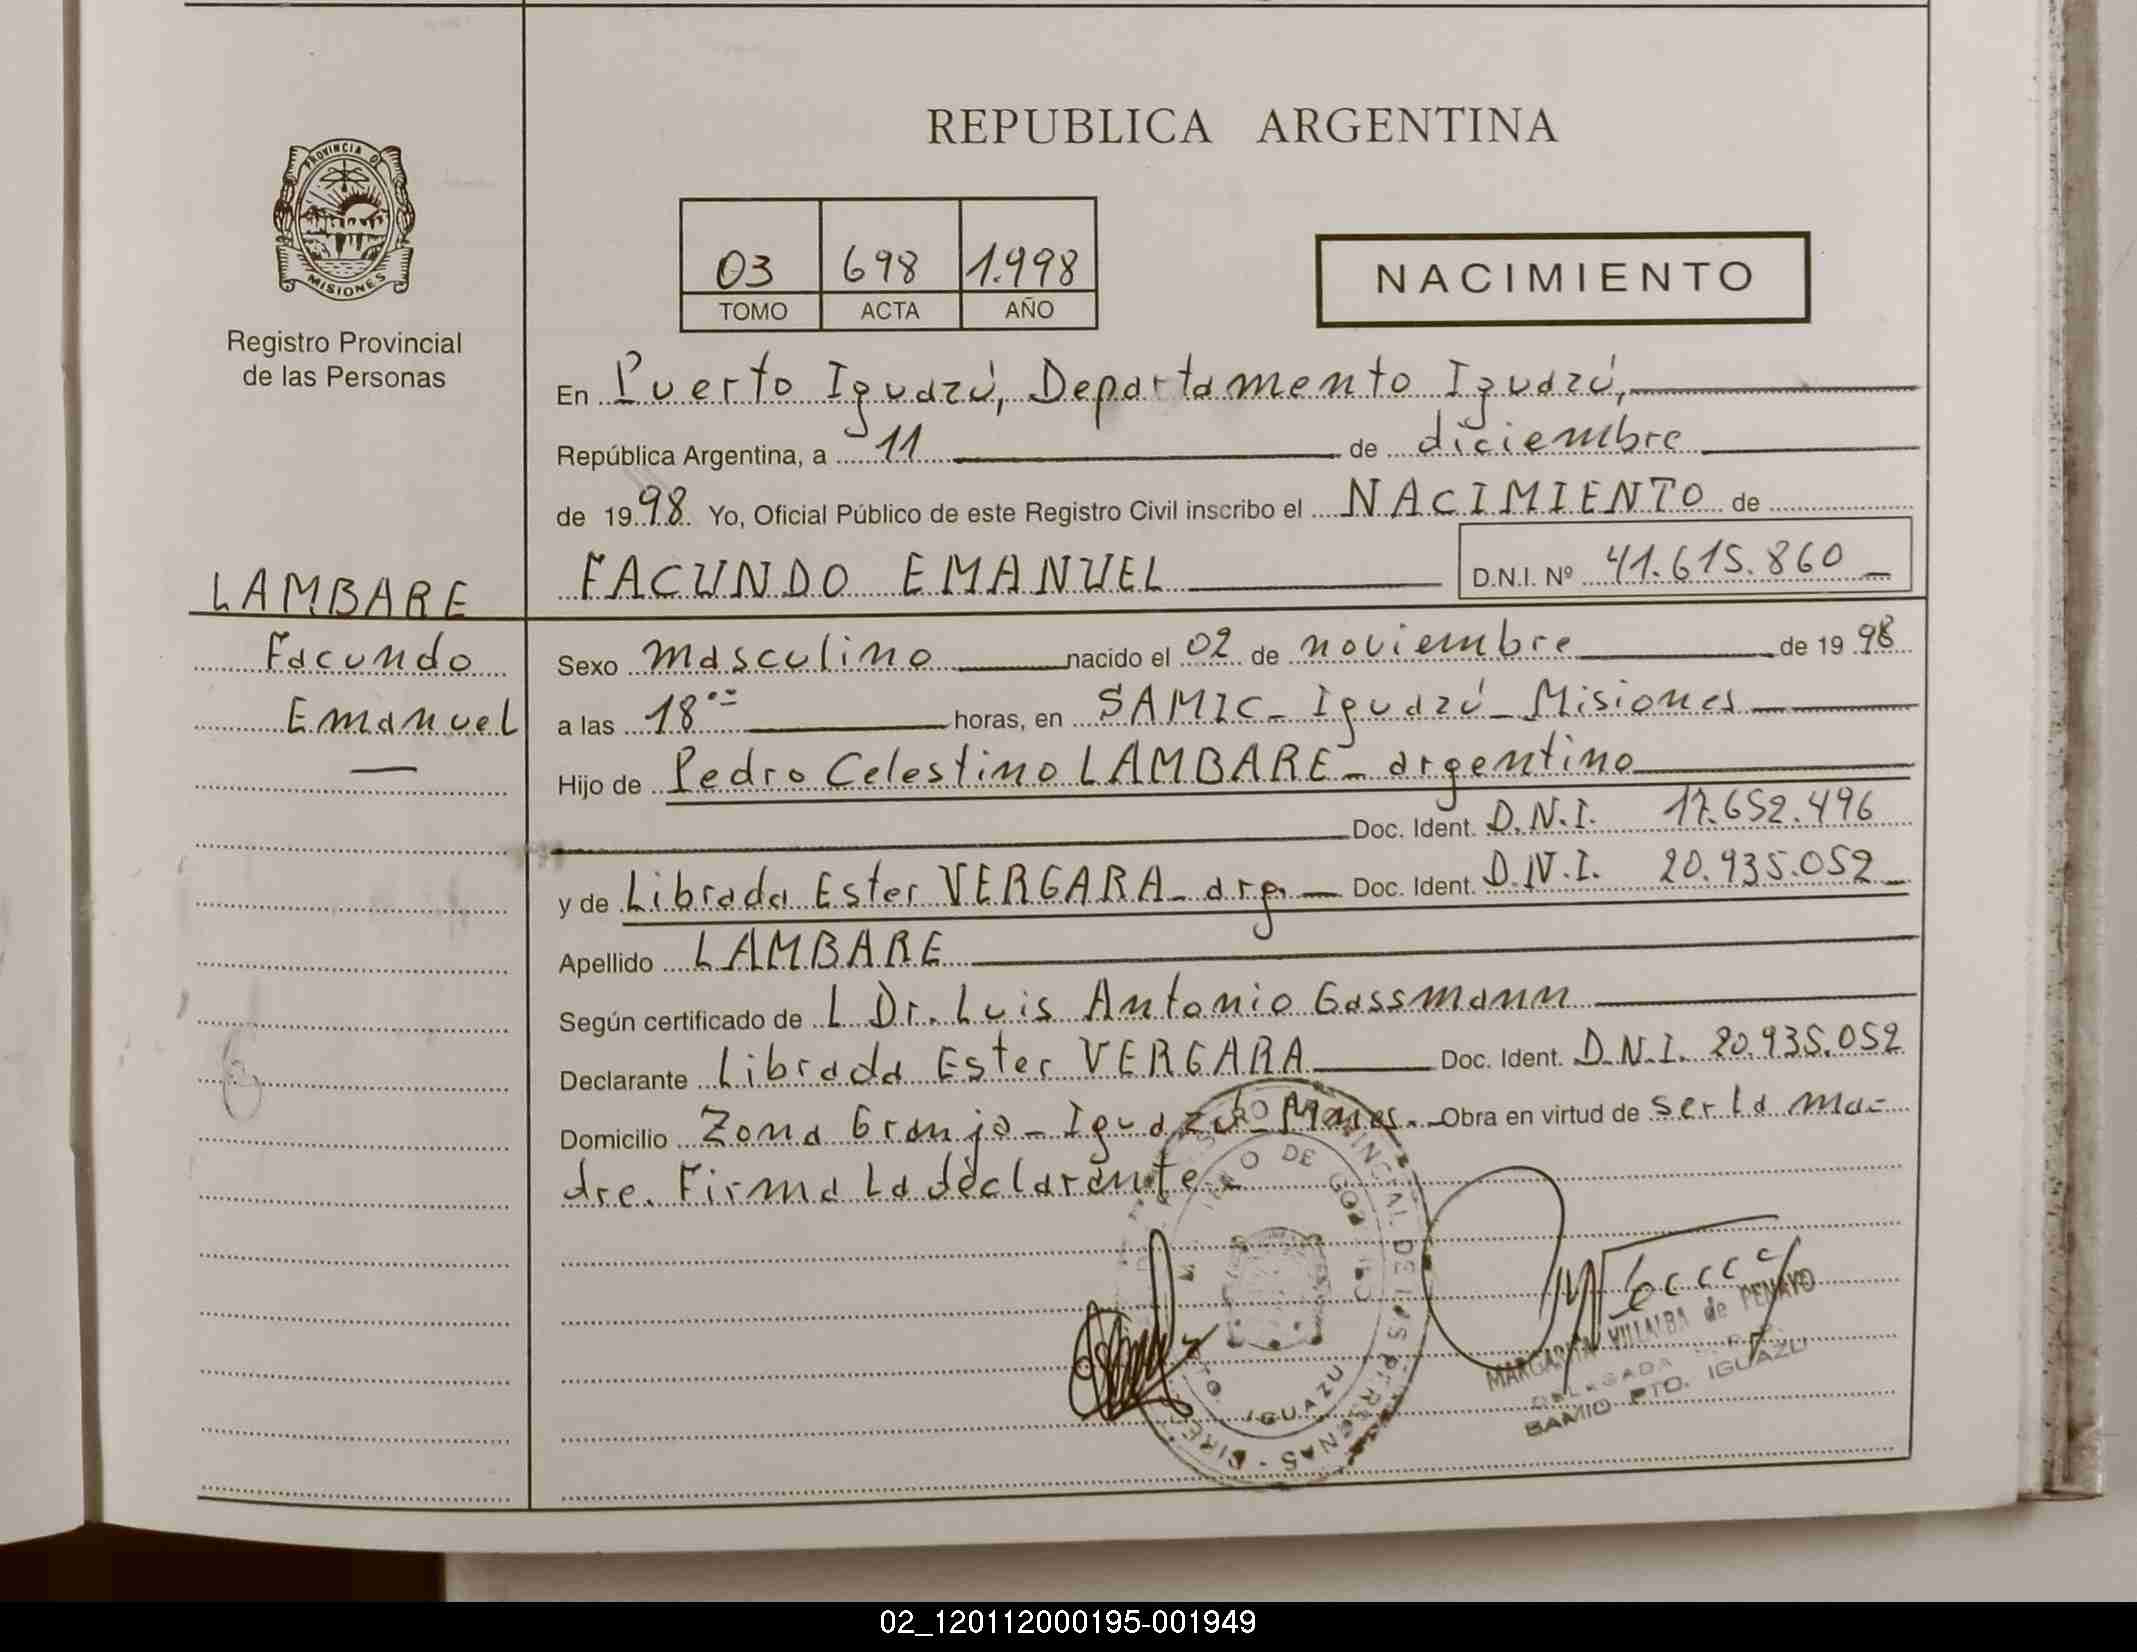 REPUBLICA ARGENTINA
PROVINCIA DE
MISIONES
Registro Provincial
de las Personas
03 698 1.998
TOMO ACTA AÑO
NACIMIENTO
En Puerto Iguazú, Departamento Iguazú,
República Argentina, a 11 de diciembre
de 1998. Yo, Oficial Público de este Registro Civil inscribo el NACIMIENTO de
FACUNDO EMANUEL D.N.I. Nº 41.615.860
LAMBARE
Facundo
Emanuel
Sexo masculino nacido el 02 de noviembre de 1998
a las 18 horas, en SAMIC - Iguazú - Misiones
Hijo de Pedro Celestino LAMBARE - argentino
Doc. Ident. D.N.I. 17.652.496
y de Librada Ester VERGARA - arg. Doc. Ident. D.N.I. 20.935.052
Apellido LAMBARE
Según certificado de L Dr. Luis Antonio Gassmann
Declarante Librada Ester VERGARA Doc. Ident. D.N.I. 20.935.052
Domicilio Zona Granja - Iguazú - Mnes. Obra en virtud de ser la ma-
dre. Firma la declarante.
PROVINCIAL DE LAS PERSONAS
IGUAZU
MARGARITA VILLALBA de PENAYO
DELEGADA
BARRIO PTO. IGUAZU
02_120112000195-001949